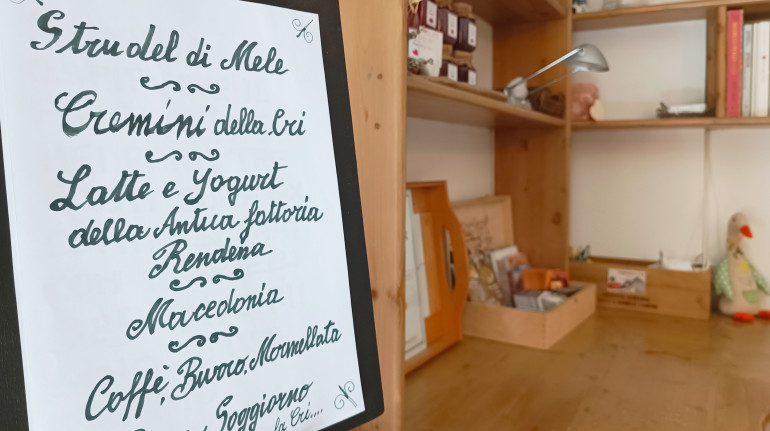 Strudel di Mele
Cremini della Cri
Latte e Yogurt
della Antica fattoria
Rendena
Macedonia
Caffè, Burro, Marmellata
Soggiorno
la Cri....